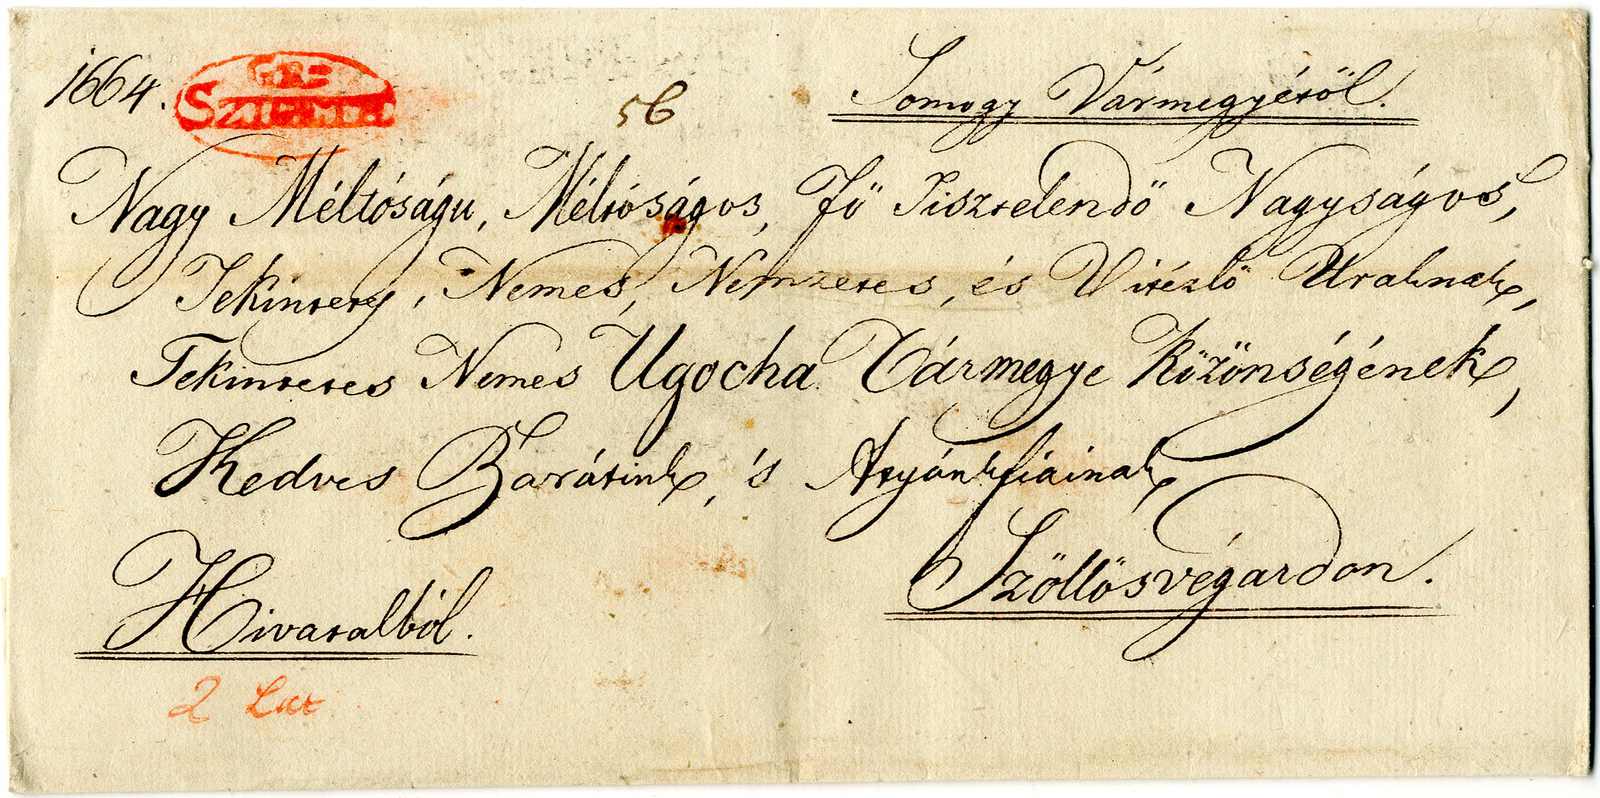 1664.
56
Somogy Vármegyéröl.
Nagy Méltóságu, Méltóságos, Fö Tisztelendö Nagyságos,
Tekintety, Nemes, Nemzetes, és Vitézlö Uraknak,
Tekintetes Nemes Ugocha Vármegye Közönségének,
Kedves Barátink, 's Atyánkfiainak
Szöllösvégardon.
Hivatalból.
2 Lat